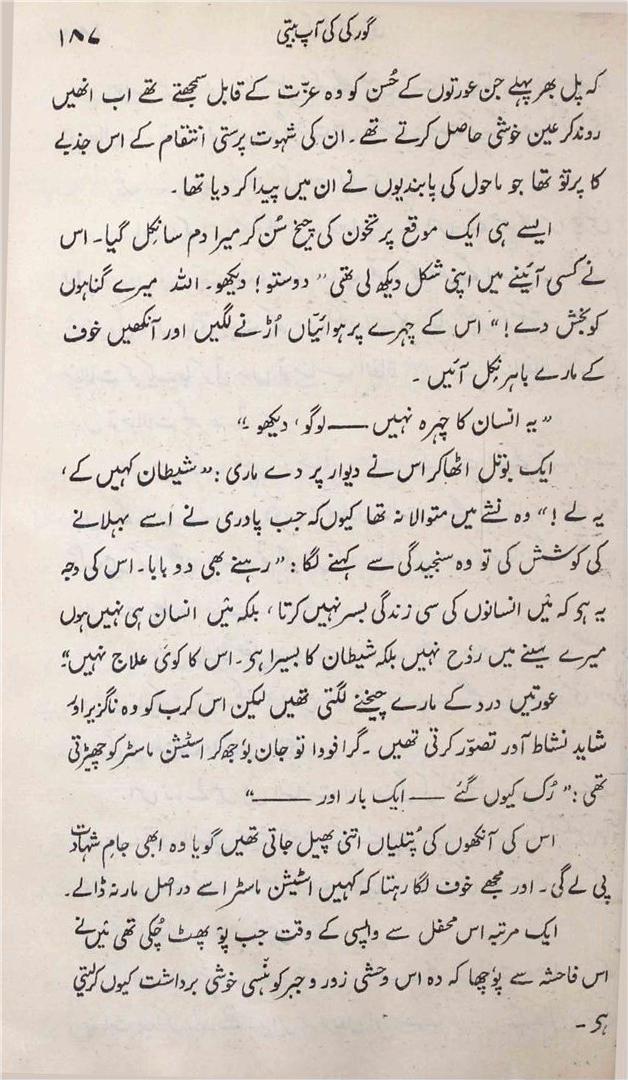 گورکی کی آپ بیتی
۱۸۷
کہ پل بھر پہلے جن عورتوں کے حُسن کو وہ عزّت کے قابل سمجھتے تھے اب انھیں
روند کر عین خوشی حاصل کرتے تھے۔ ان کی شہوت پرستی انتقام کے اس جذبے
کا پرتوٗ تھا جو ماحول کی پابندیوں نے ان میں پیدا کر دیا تھا۔
ایسے ہی ایک موقع پر تخون کی چیخ سُن کر میرا دم سا نکل گیا۔ اس
نے کسی آئینے میں اپنی شکل دیکھ لی تھی ”دوستو! دیکھو۔ اللہ میرے گناہوں
کو بخش دے!“ اس کے چہرے پر ہوائیّاں اُڑنے لگیں اور آنکھیں خوف
کے مارے باہر نکل آئیں۔
”یہ انسان کا چہرہ نہیں —— لوگو، دیکھو۔“
ایک بوٗتل اٹھا کر اس نے دیوار پر دے ماری: ”شیطان کہیں کے،
یہ لے!“ وہ نشے میں متوالا نہ تھا کیوں کہ جب پادری نے اسے بہلانے
کی کوشش کی تو وہ سنجیدگی سے کہنے لگا: ”رہنے بھی دو بابا۔ اس کی وجہ
یہ ہو کہ مَیں انسانوں کی سی زندگی بسر نہیں کرتا، بلکہ مَیں انسان ہی نہیں ہوں
میرے سینے میں روٗح نہیں بلکہ شیطان کا بسیرا ہو۔ اس کا کوئی علاج نہیں“۔
عورتیں درد کے مارے چیخنے لگتی تھیں لیکن اس کرب کو وہ ناگزیر اور
شاید نشاط آور تصوّر کرتی تھیں۔ گرافودا تو جان بوٗجھ کر اسٹیشن ماسٹر کو چھیڑتی
تھی: ”رُک کیوں گئے —— ایک بار اور ——“
اس کی آنکھوں کی پُتلیاں اتنی پھیل جاتی تھیں گویا وہ ابھی جامِ شہادت
پی لے گی۔ اور مجھے خوف لگا رہتا کہ کہیں اسٹیشن ماسٹر اسے دراصل مار نہ ڈالے۔
ایک مرتبہ اس محفل سے واپسی کے وقت جب پوٗ پھٹ چُکی تھی مَیں نے
اس فاحشہ سے پوٗچھا کہ وہ اس وحشی زور و جبر کو ہنسی خوشی برداشت کیوں کر لیتی
ہو۔